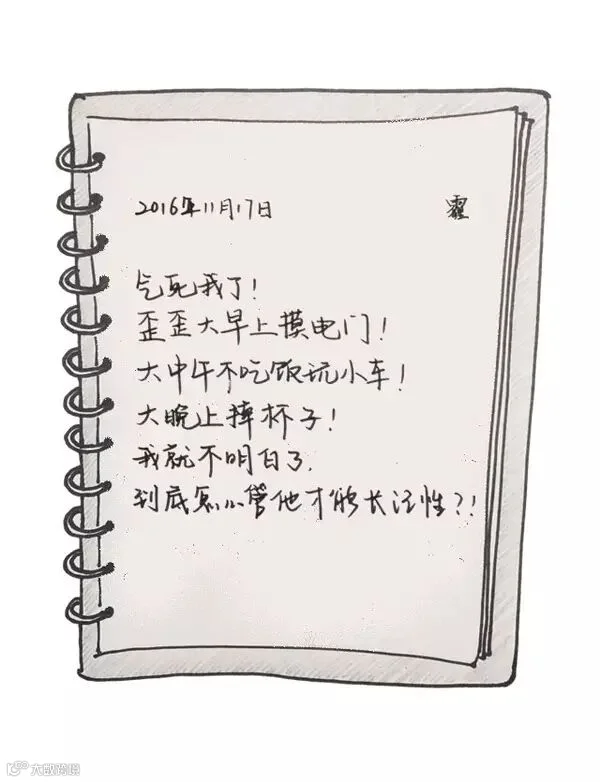 2016年11月17日 霾
气死我了!
歪歪大早上摸电门!
大中午不吃饭玩小车!
大晚上摔杯子!
我就不明白了.
到底怎么管他才能长记性?!
大数跨境